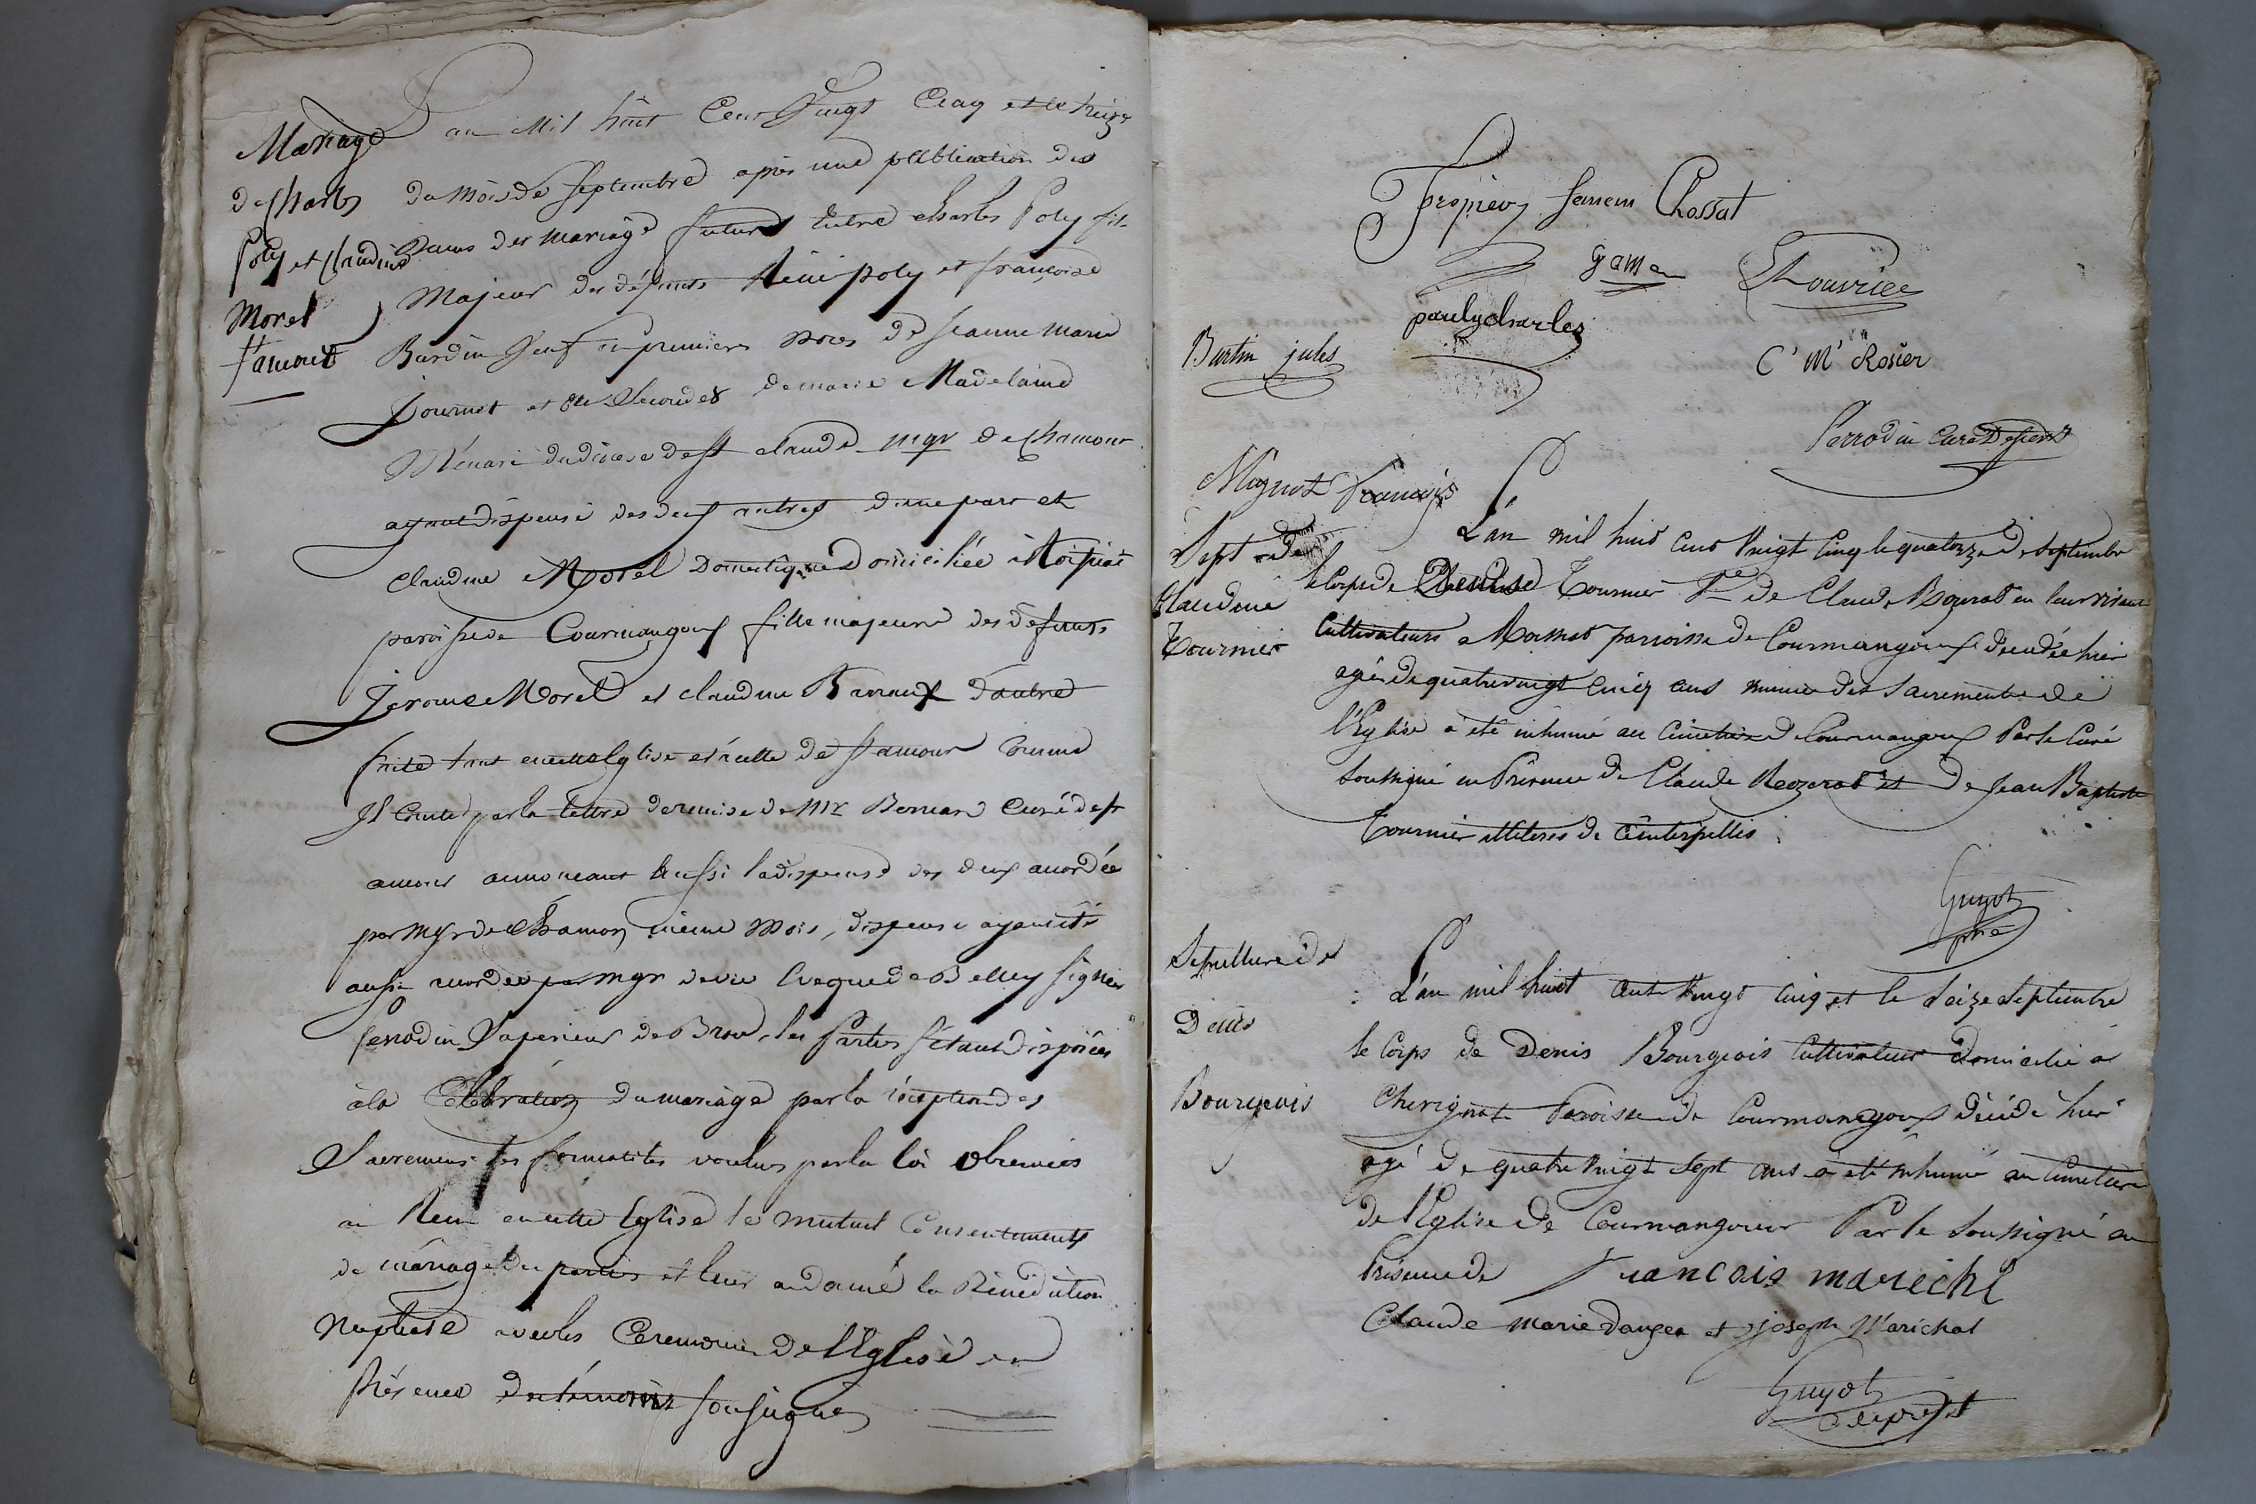 Mariage
de Charles
Poly et Claudine
Morel
St amour
L'an Mil huit Cent Vingt Cinq et le treize
du mois de Septembre après une publication des
Bans de mariage futur Entre charles Poly fils
Majeur des défunts Réné poly et françoise
Bardin Veuf en premieres noces de Jeanne Marie
Journet et en Secondes de marie Madelaine
Ménari du diocese de St claude mgr de Chamon
ayant dispensé des deux autres d'une part et
claudine Morel Domestique Domiciliée à Roissiat
paroisse de Courmangoux fille majeure des défunts
Jérome Morel et claudine Barraux d'autre
faite tant en cette Eglise et à celle de St amour Comme
Il Conste par la lettre de remise de Mr Bernard Curé de St
amour annoncant aussi la dispense des deux accordée
par Mgr de Chamon même Mois, dispense ayant été
aussi accordée par mgr devie Eveque de Belley Signée
Perrodin Superieur de Brou, les Parties S'étant disposées
à la Célébration du mariage par la réception des
Sacremens les formalités voulues par la loi observées
ai Reçu en cette Eglise le mutuel Consentement
de mariage des parties et leur ai donné la Bénédiction
Nuptiale avec les Ceremonies de l'Eglise en
Présence des témoins Soussignés
Chossat
Gama
Louvrier
pauly charles
Burtin jules
C' M' Rosier
Perrodin Curé
Mignot françois
Sept de
Claudine
Tournier
L'an mil huit cent Vingt Cinq le quatorze de Septembre
le Corps de Claudine Tournier Fe de Claude Rozerat en leur vivant
Cultivateurs a paroisse de Courmangoux décédée hier
agée de quatre vingt Cinq ans munie des Sacrements de
l'Eglise a été inhumé au Cimetiere de Courmangoux Par le Curé
Soussigné en Présence de Claude Rozerat et de Jean Baptiste
Tournier illiteres de Ce interpellés
Guyot
ptre
Sepulture de
Denis
Bourgeois
L'an mil huit cent Vingt Cinq et le Seize Septembre
le Corps de Denis Bourgeois Cultivateur domicilié à
Chevignat Paroisse de Courmangoux décédé hier
agé de quatre vingt Sept ans a été inhumé au Cimetiere
de l'Eglise de Courmangoux Par le Soussigné en
Présence de francois marechl
Claude marie danger et joseph Maréchal
Guyot